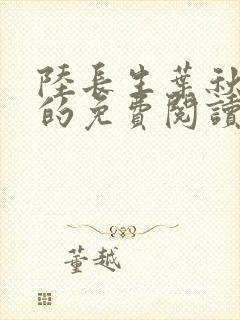 陸長生葉秋
的免費閱讀
董越